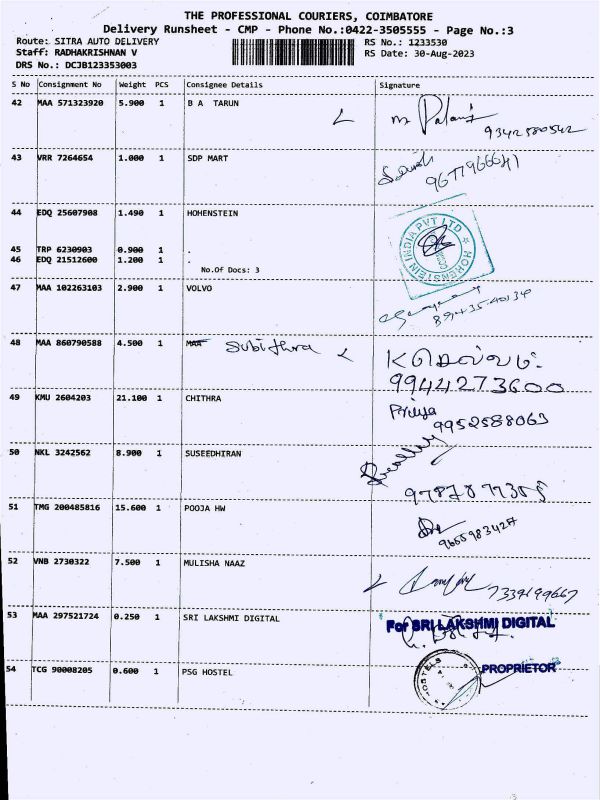 THE PROFESSIONAL COURIERS, COIMBATORE
Delivery Runsheet - CMP - Phone No.:0422-3505555 - Page No.:3
Route: SITRA AUTO DELIVERY RS No.: 1233530
Staff: RADHAKRISHNAN V RS Date: 30-Aug-2023
DRS No.: DCJB123353003
S No Consignment No Weight PCS Consignee Details Signature
42 MAA 571323920 5.900 1 B A TARUN
9342580542
43 VRR 7264654 1.000 1 SDP MART
9677966641
44 EDQ 25607908 1.490 1 HOHENSTEIN
HOHENSTEIN INDIA PVT LTD
45 TRP 6230903 0.900 1 .
46 EDQ 21512600 1.200 1 .
No.Of Docs: 3
47 MAA 102263103 2.900 1 VOLVO
48 MAA 860790588 4.500 1 MAA Subithra
K செல்வம்
9944273600
49 KMU 2604203 21.100 1 CHITHRA Priya
9952588063
50 NKL 3242562 8.900 1 SUSEEDHIRAN
51 TMG 200485816 15.600 1 POOJA HW
9665983427
52 VNB 2730322 7.500 1 MULISHA NAAZ
7339199667
53 MAA 297521724 0.250 1 SRI LAKSHMI DIGITAL For SRI LAKSHMI DIGITAL
54 TCG 90008205 0.600 1 PSG HOSTEL PROPRIETOR